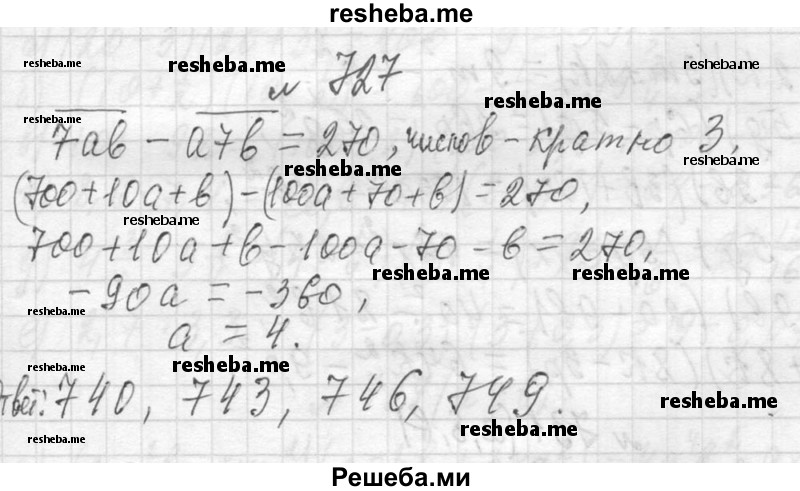 resheba.me
№ 727
resheba.me resheba.me resheba.me
resheba.me
resheba.me
7ав - а7в = 270, число в - кратно 3,
resheba.me
resheba.me
(700+10а+в)-(100а+70+в)=270,
resheba.me
700+10а+в-100а-70-в=270,
resheba.me resheba.me
-90а = -360,
resheba.me
а = 4.
resheba.me resheba.me
Ответ: 740, 743, 746, 749.
resheba.me
resheba.me
resheba.me
Решеба.ми